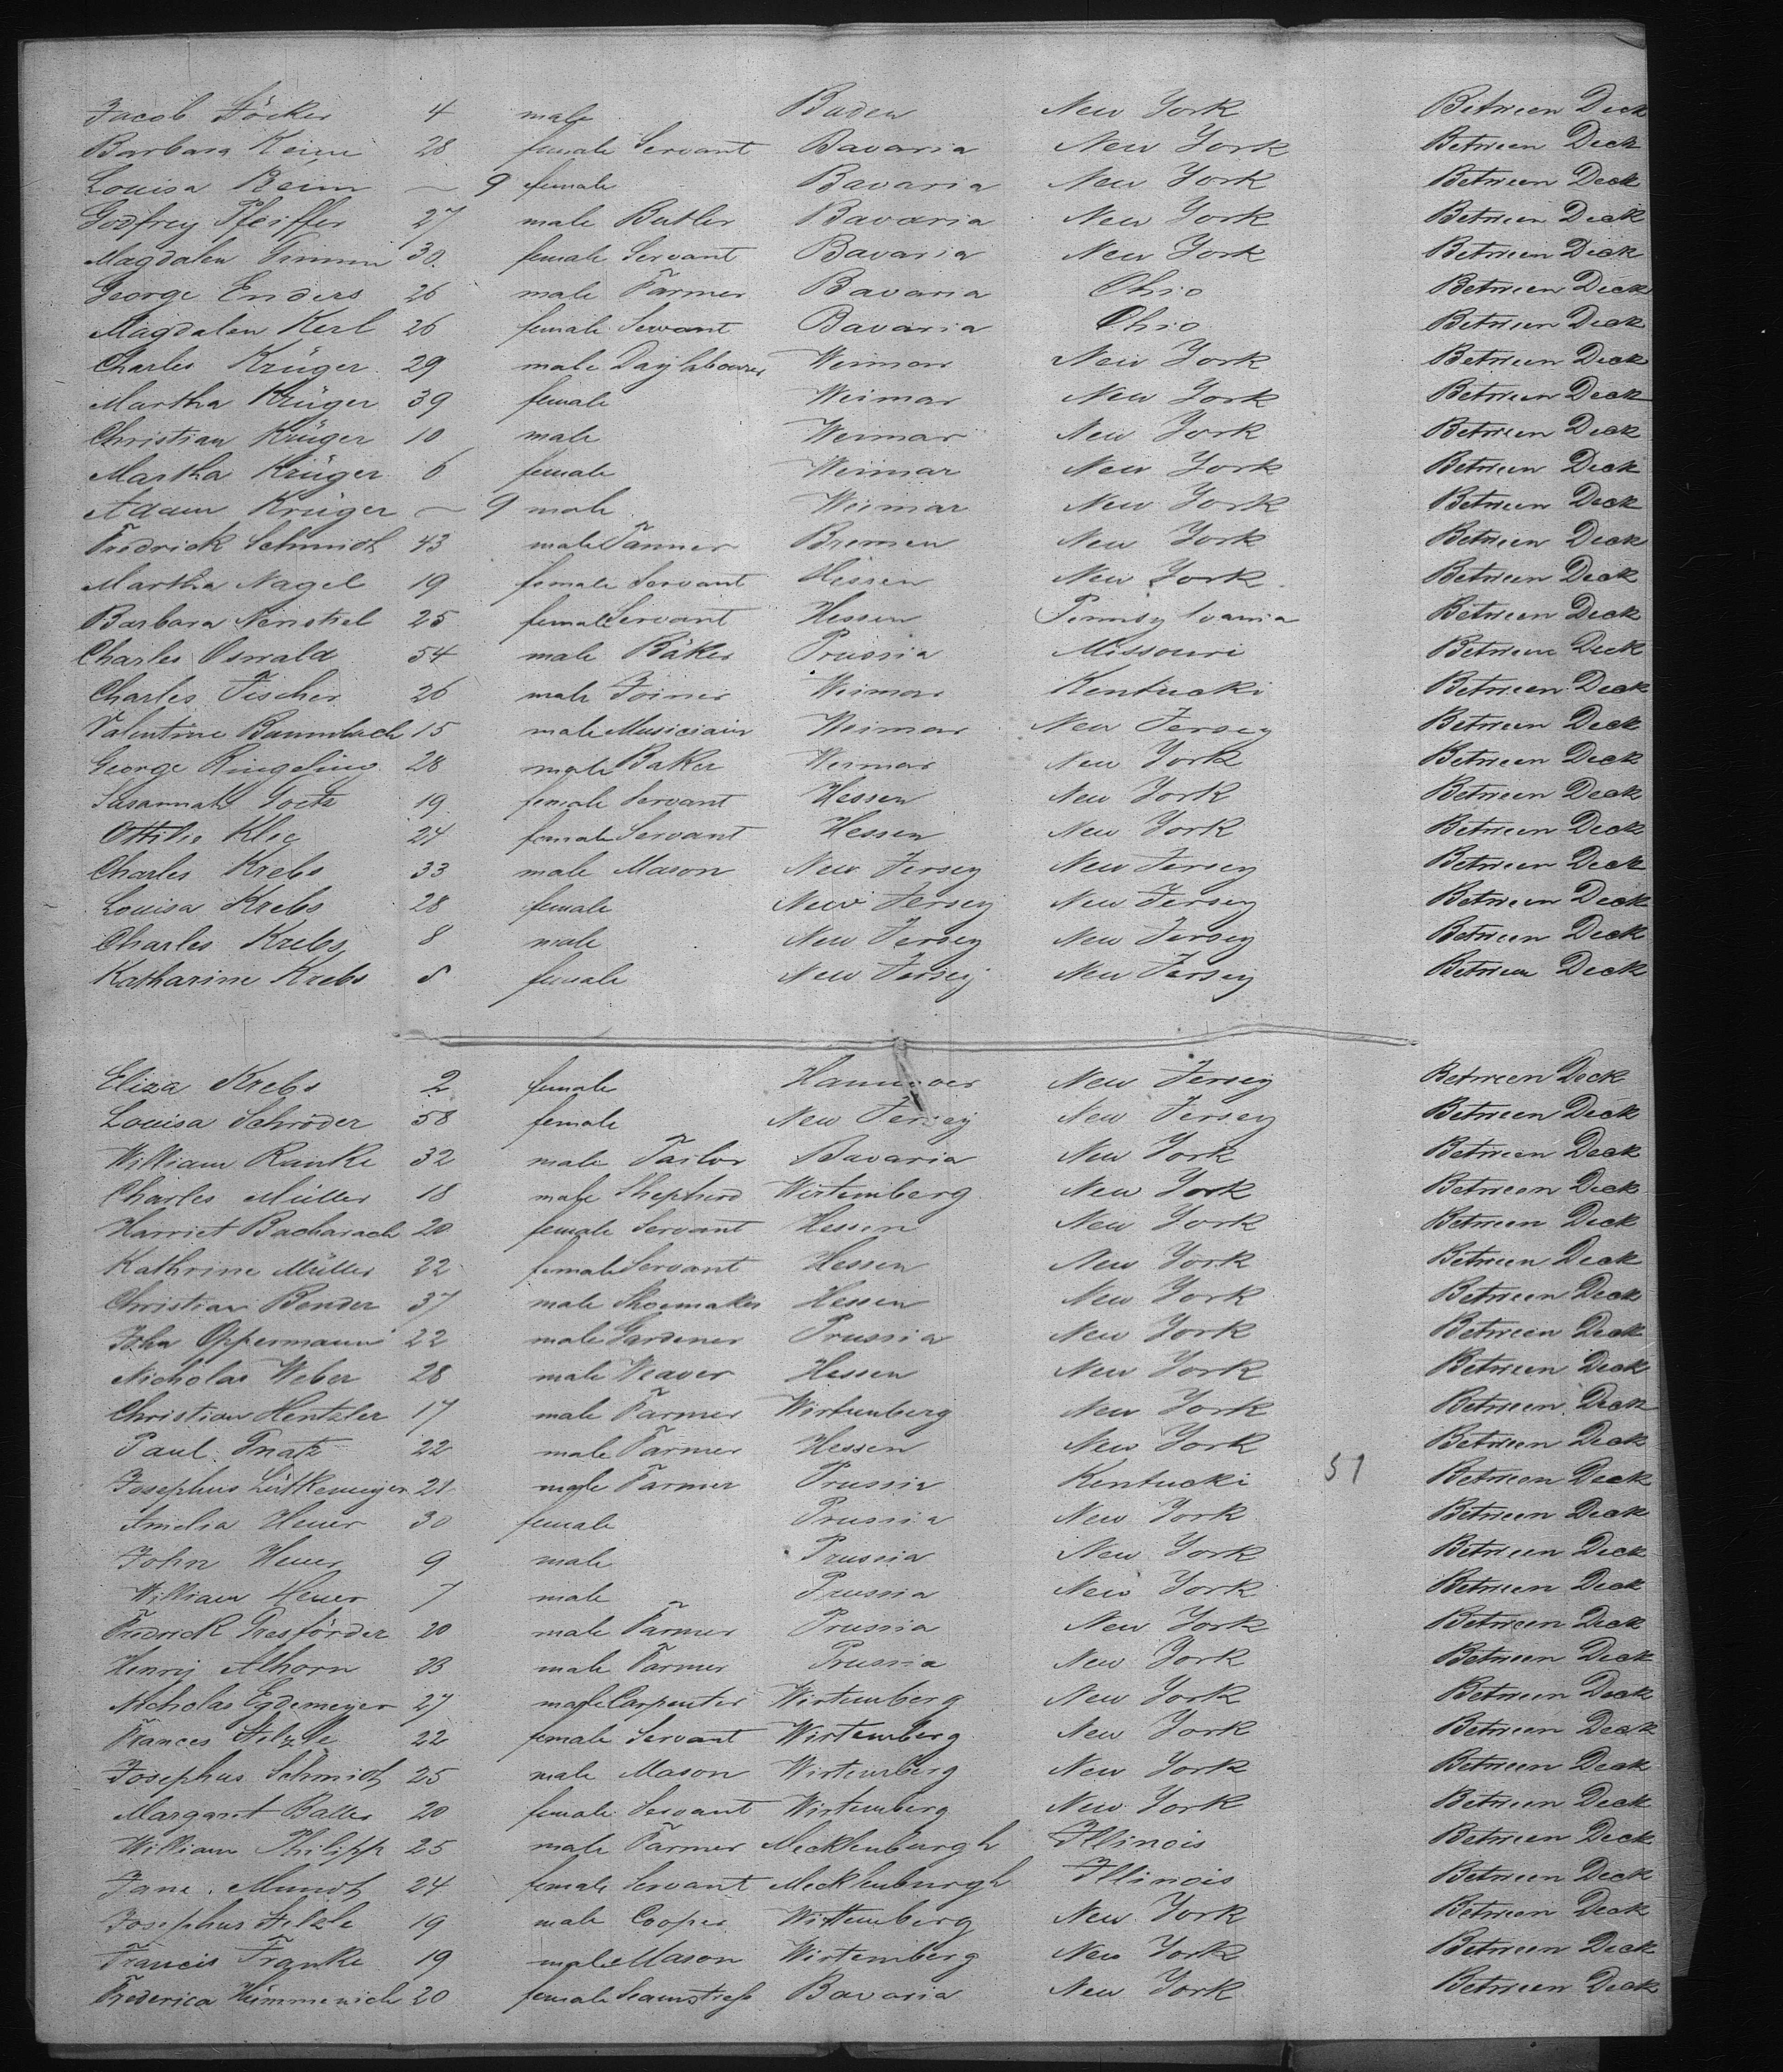 Jacob Stöcker 4 male Baden New York Between Deck
Barbara Keim 28 female Servant Bavaria New York Between Deck
Louisa Beim — 9 female Bavaria New York Between Deck
Godfrey Pfeiffer 27 male Butler Bavaria New York Between Deck
Magdalen 30 female Servant Bavaria New York Between Deck
George Enders 26 male Farmer Bavaria Ohio Between Deck
Magdalen Kerl 26 female Servant Bavaria Ohio Between Deck
Charles Krüger 29 male Day labourer Weimar New York Between Deck
Martha Krüger 39 female Weimar New York Between Deck
Christian Krüger 10 male Weimar New York Between Deck
Martha Krüger 6 female Weimar New York Between Deck
Adam Krüger — 9 male Weimar New York Between Deck
Fredrick Schmidt 43 male Tanner Bremen New York Between Deck
Martha Nagel 19 female Servant Hessen New York Between Deck
Barbara Nenstiel 25 female Servant Hessen Pennsylvania Between Deck
Charles Oswald 54 male Bäker Prussia Missouri Between Deck
Charles Fischer 26 male Joiner Weimar Kentucki Between Deck
Valentine Baumbach 15 male Musiciain Weimar New Jersey Between Deck
George Ringeling 28 male Baker Weimar New York Between Deck
Susannah Goetz 19 female Servant Hessen New York Between Deck
Ottilie Klee 24 female Servant Hessen New York Between Deck
Charles Krebs 33 male Mason New Jersey New Jersey Between Deck
Louisa Krebs 28 female New Jersey New Jersey Between Deck
Charles Krebs 8 male New Jersey New Jersey Between Deck
Katharine Krebs 5 female New Jersey New Jersey Between Deck
Eliza Krebs 2 female Hannover New Jersey Between Deck
Louisa Schröder 58 female New Jersey New Jersey Between Deck
William Ranke 32 male Tailor Bavaria New York Between Deck
Charles Müller 18 male Shepherd Wirtemberg New York Between Deck
Harriet Bacharach 20 female Servant Hessen New York Between Deck
Kathrine Müller 22 female Servant Hessen New York Between Deck
Christian Bender 37 male Shoemaker Hessen New York Between Deck
John Oppermann 22 male Gardener Prussia New York Between Deck
Nicholas Weber 28 male Weaver Hessen New York Between Deck
Christian Hentzler 17 male Farmer Wirtemberg New York Between Deck
Paul Gnatz 22 male Farmer Hessen New York Between Deck
Josephus Lütkemeyer 21 male Farmer Prussia Kentucki 51 Between Deck
Amelia Heuer 30 female Prussia New York Between Deck
John Heuer 9 male Prussia New York Between Deck
William Heuer 7 male Prussia New York Between Deck
Fredrick Gresförder 20 male Farmer Prussia New York Between Deck
Henry Alhorn 23 male Farmer Prussia New York Between Deck
Nicholas Egdemeyer 27 male Carpenter Wirtemberg New York Between Deck
Frances Stelzle 22 female Servant Wirtemberg New York Between Deck
Josephus Schmidt 25 male Mason Wirtemberg New York Between Deck
Margaret Baller 20 female Servant Wirtemberg New York Between Deck
William Philipp 25 male Farmer Mecklenburgh Illinois Between Deck
Jane Mundt 24 female Servant Mecklenburgh Illinois Between Deck
Josephus Stelzle 19 male Cooper Wirtemberg New York Between Deck
Francis Franke 19 male Mason Wirtemberg New York Between Deck
Frederica Hümmerich 20 female Seamstress Bavaria New York Between Deck